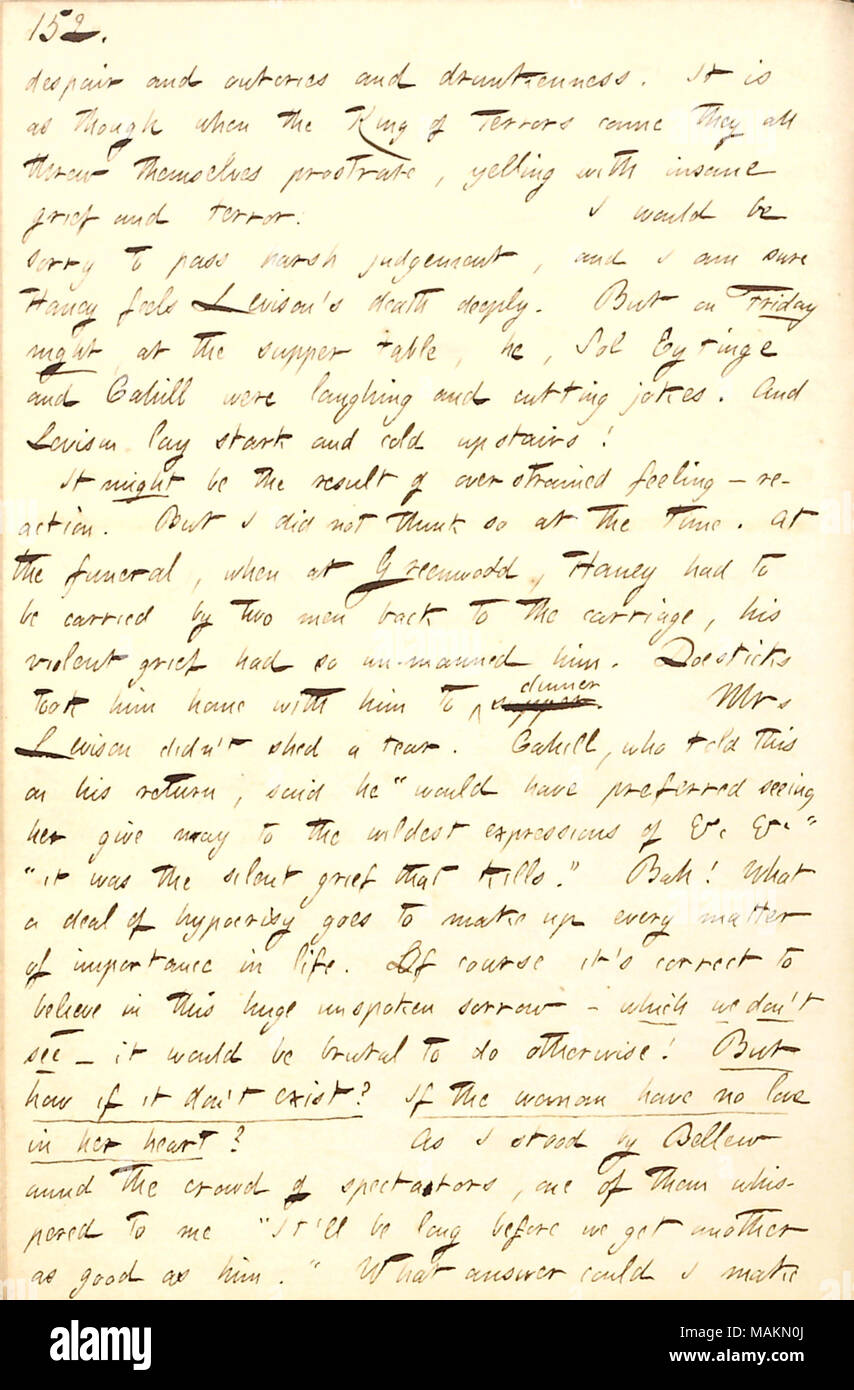 152.
despair and outcries and drunkenness. It is
as though when the King of Terrors came they all
threw themselves prostrate, yelling with insane
grief and terror. I would be
sorry to pass harsh judgement, and I am sure
Haney feels Levison's death deeply. But on Friday
night, at the supper table, he, Sol Eytinge
and Cahill were laughing and cutting jokes. And
Levison lay stark and cold upstairs!
It might be the result of over strained feeling — re-
action. But I did not think so at the time. At
the funeral, when at Greenwood, Haney had to
be carried by two men back to the carriage, his
violent grief had so un-manned him. Doesticks
took him home with him to dinner supper. Mrs
Levison didn't shed a tear. Cahill, who told this
on his return, said he "would have preferred seeing
her give way to the wildest expressions of &c &c"
"it was the silent grief that kills." Bah! What
a deal of hypocrisy goes to make up every matter
of importance in life. Of course it's correct to
believe in this huge unspoken sorrow - which we don't
see — it would be brutal to do otherwise! But
how if it don't exist? If the woman have no love
in her heart? As I stood by Bellew
amid the crowd of spectators, one of them whis-
pered to me "It'll be long before we get another
as good as him." What answer could I make
alamy
Image ID: MAKN0J
www.alamy.com